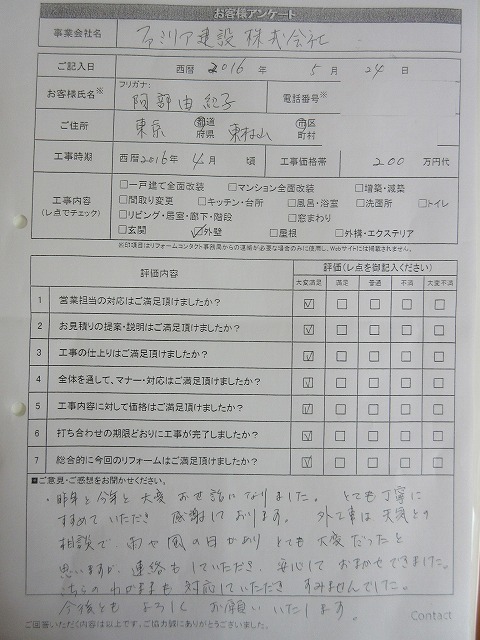 お客様アンケート
事業会社名 ファミリア建設 株式会社
ご記入日 西暦 2016 年 5 月 24 日
お客様氏名※ フリガナ: 阿部由紀子 電話番号※
ご住所 東京 都道府県 東村山 市区町村
工事時期 西暦2016年 4月 頃 工事価格帯 200 万円代
工事内容 (レ点でチェック)
□一戸建て全面改装 □マンション全面改装 □増築・減築
□間取り変更 □キッチン・台所 □風呂・浴室 □洗面所 □トイレ
□リビング・居室・廊下・階段 □窓まわり
□玄関 ☑外壁 □屋根 □外構・エクステリア
※印項目はリフォームコンタクト事務局からの連絡が必要な場合のみに使用し、Webサイトには掲載されません。
評価内容 評価(レ点を御記入ください)
大変満足 満足 普通 不満 大変不満
1 営業担当の対応はご満足頂けましたか? ☑ □ □ □ □
2 お見積りの提案・説明はご満足頂けましたか? ☑ □ □ □ □
3 工事の仕上りはご満足頂けましたか? ☑ □ □ □ □
4 全体を通して、マナー・対応はご満足頂けましたか? ☑ □ □ □ □
5 工事内容に対して価格はご満足頂けましたか? ☑ □ □ □ □
6 打ち合わせの期限どおりに工事が完了しましたか? ☑ □ □ □ □
7 総合的に今回のリフォームはご満足頂けましたか? ☑ □ □ □ □
■ご意見・ご感想をお聞かせください。
・昨年と今年と大変お世話になりました。とても丁寧に
すすめていただき 感謝しております。外工事は天気との
相談で、雨や風の日がありとても大変だったと
思いますが、連絡もしていただき、安心しておまかせできました。
こちらのわがままも対応していただき すみませんでした。
今後とも よろしく お願いいたします。
Contact
ご回答いただく内容は以上です。ご協力誠にありがとうございました。